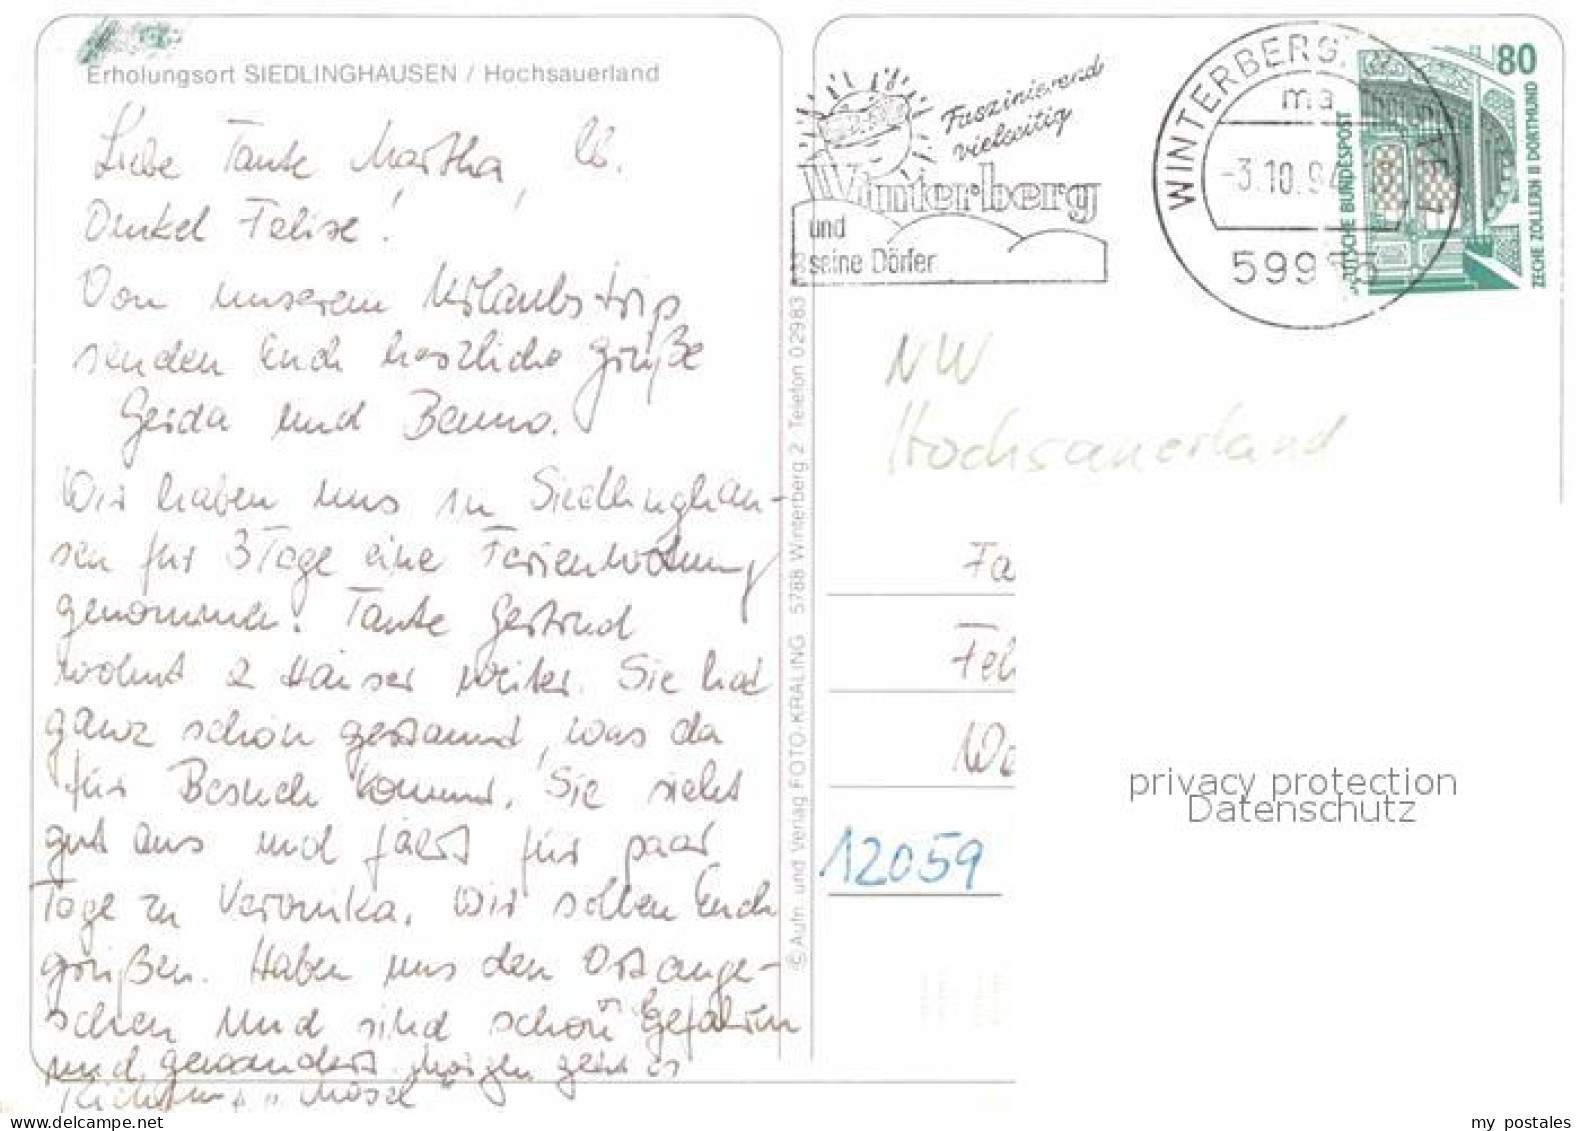 Erholungsort SIEDLINGHAUSEN / Hochsauerland
Liebe Tante Martha, lb.
Onkel Felix!
Von unserem Urlaubstrip
senden Euch herzliche Grüße
Gerda und Benno.
Wir haben uns in Siedlinghau-
sen für 3 Tage eine Ferienwohnung
genommen. Tante Gertrud
wohnt 2 Häuser weiter. Sie hat
ganz schön gestaunt, was da
für Besuch kommt. Sie sieht
gut aus und fährt für paar
Tage zu Veronika. Wir sollen Euch
grüßen. Haben uns den Ort ange-
sehen und sind schon gefahren
und gewandert. Morgen geht es
Richtung "Mosel
© Aufn. und Verlag FOTO-KRALING 5788 Winterberg 2 Telefon 02983
Faszinierend
vielseitig
Winterberg
und
seine Dörfer
WINTERBERG, WESTF 1
ma
-3.10.94
59955
80
DEUTSCHE BUNDESPOST
ZECHE ZOLLERN II DORTMUND
NW
Hochsauerland
Fa
Feli
Wa
12059
privacy protection
Datenschutz
my postales